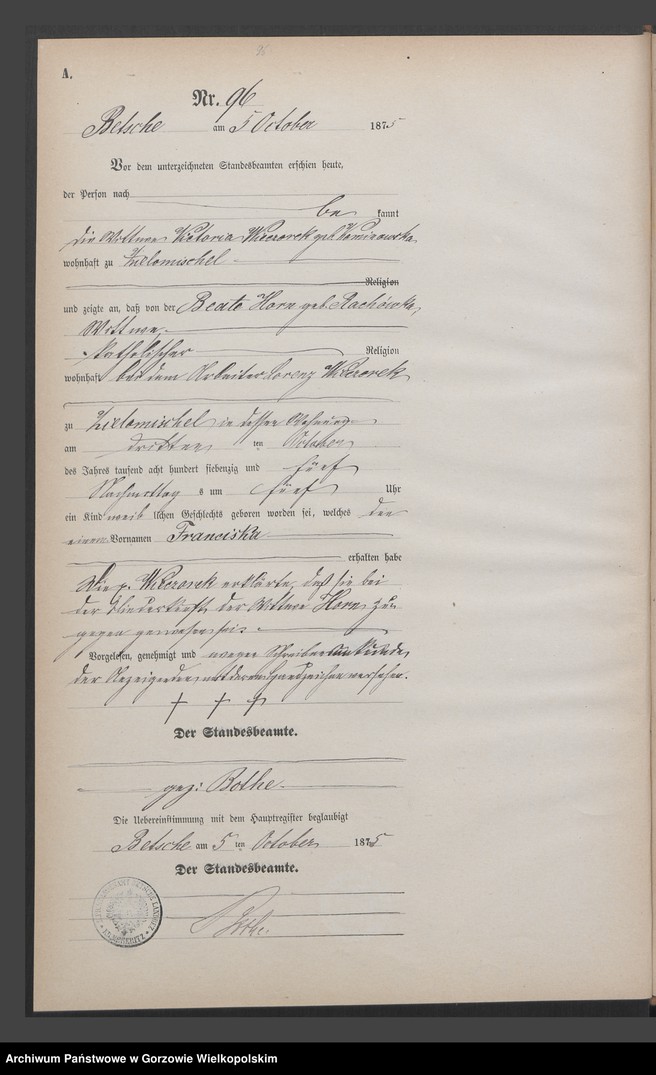 95
A.
Nr. 96
Betsche am 5 October 1875
Vor dem unterzeichneten Standesbeamten erschien heute,
der Person nach
be kannt
die Wittwe Victoria Wieczorek geb.
wohnhaft zu Zielomischel
Religion
und zeigte an, daß von der Beate Horn geb.
Wittwe
katholischer Religion
wohnhaft bei dem Arbeiter Lorenz Wieczorek
zu Zielomischel in dessen Wohnung
am dritten ten October
des Jahres tausend acht hundert siebenzig und fünf
Nachmittag s um fünf Uhr
ein Kind weib lichen Geschlechts geboren worden sei, welches den
einen Vornamen Franciska
erhalten habe
Die p. Wieczorek erklärte, daß sie bei
der Niederkunft der Wittwe Horn zu-
gegen gewesen sei.
Vorgelesen, genehmigt und wegen Schreibensunkunde
der Anzeigenden mit deren Handzeichen versehen.
+ + +
Der Standesbeamte.
gez: Bothe
Die Uebereinstimmung mit dem Hauptregister beglaubigt
Betsche am 5 ten October 1875
Der Standesbeamte.
Bothe
Archiwum Państwowe w Gorzowie Wielkopolskim